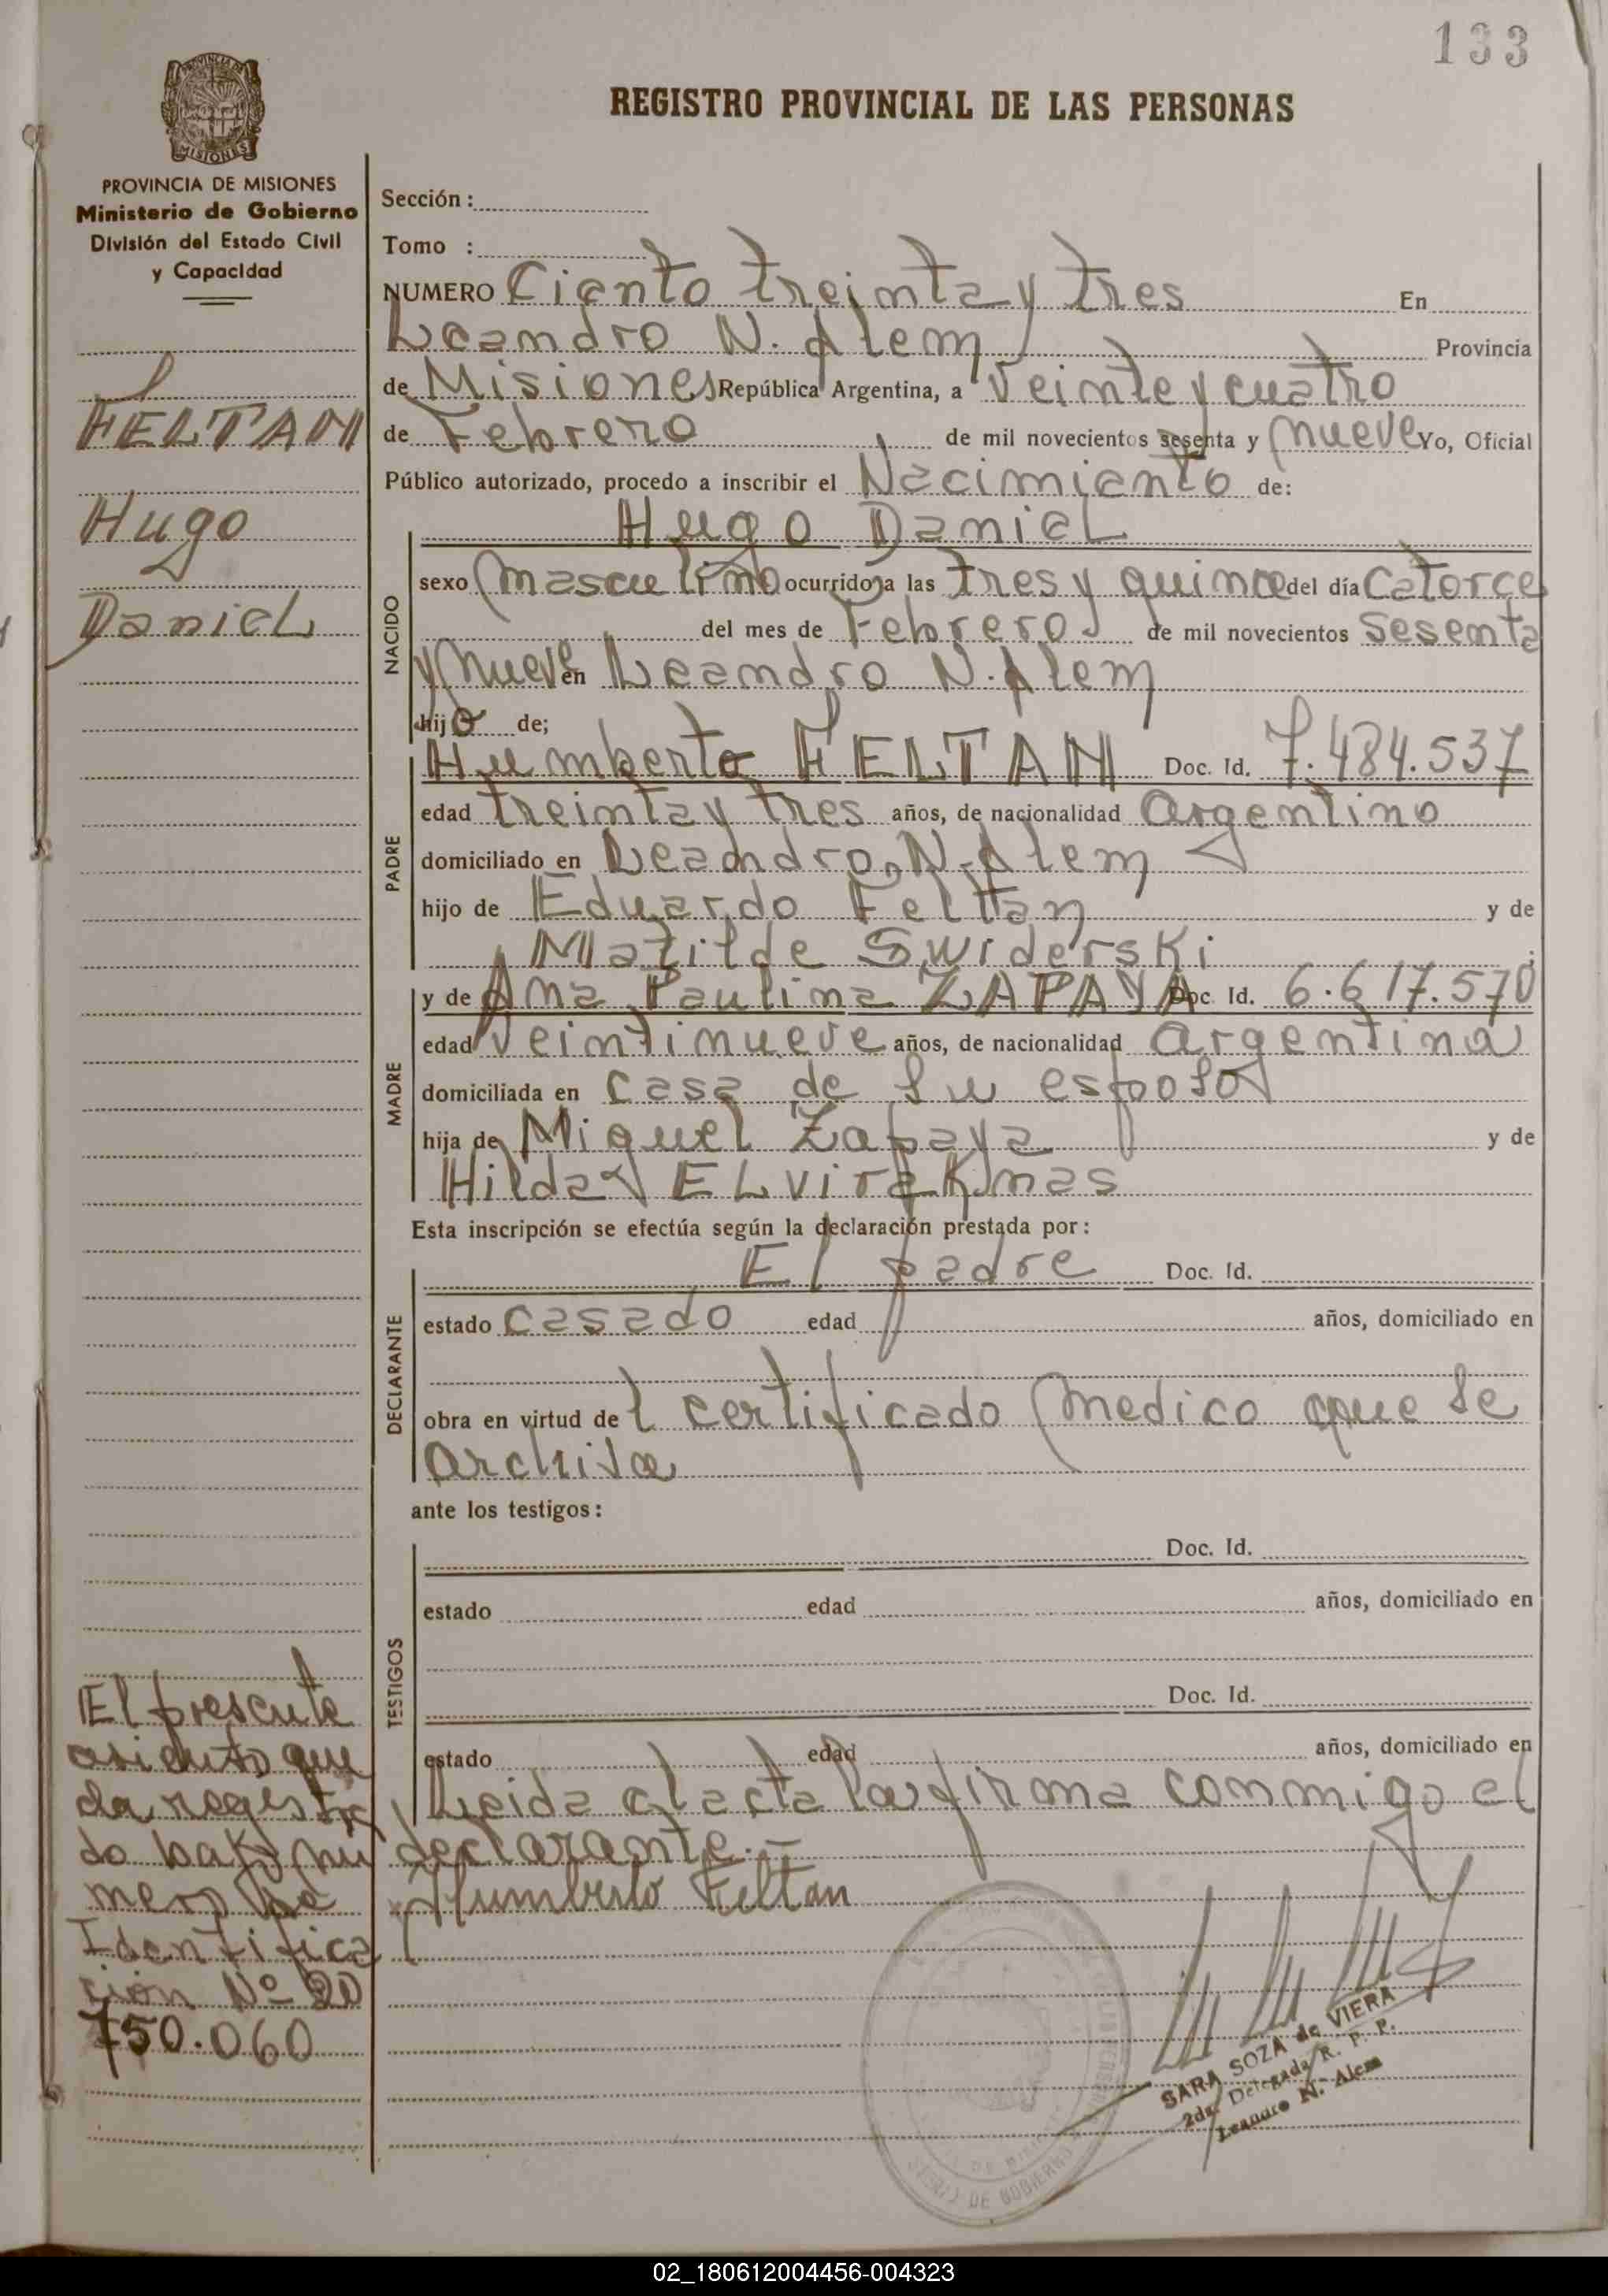 133
REGISTRO PROVINCIAL DE LAS PERSONAS
PROVINCIA DE MISIONES
MISIONES
PROVINCIA DE MISIONES
Ministerio de Gobierno
División del Estado Civil
y Capacidad
FELTAN
Hugo
Daniel
Sección :
Tomo :
NUMERO Ciento treinta y tres En
Leandro N. Alem Provincia
de Misiones República Argentina, a veinte y cuatro
de Febrero de mil novecientos sesenta y nueve Yo, Oficial
Público autorizado, procedo a inscribir el Nacimiento de:
NACIDO
Hugo Daniel
sexo masculino ocurrido a las tres y quince del día catorce
del mes de Febrero de mil novecientos sesenta
y nueve en Leandro N. Alem
hijo de;
PADRE
Humberto FELTAN Doc. Id. 7.484.537
edad treinta y tres años, de nacionalidad argentino
domiciliado en Leandro N. Alem
hijo de Eduardo Feltan y de
Matilde Swiderski ;
MADRE
y de Ana Paulina ZAPAYA Doc. Id. 6.617.570
edad veintinueve años, de nacionalidad argentina
domiciliada en casa de su esposo
hija de Miguel Zapaya y de
Hilda Elvira
Esta inscripción se efectúa según la declaración prestada por:
DECLARANTE
El padre Doc. Id.
estado casado edad años, domiciliado en
obra en virtud del certificado medico que se
archiva
ante los testigos:
TESTIGOS
Doc. Id.
estado edad años, domiciliado en
Doc. Id.
estado edad años, domiciliado en
Leida el acta la firma conmigo el
declarante.-
Humberto Feltan
El presente
asiento que
da registra
do bajo nu
mero de
Identifica
ción Nº 20
750.060
SARA SOZA de VIERA
2da. Delegada R. P. P.
Leandro N. Alem
DE GOBIERNO
02_180612004456-004323